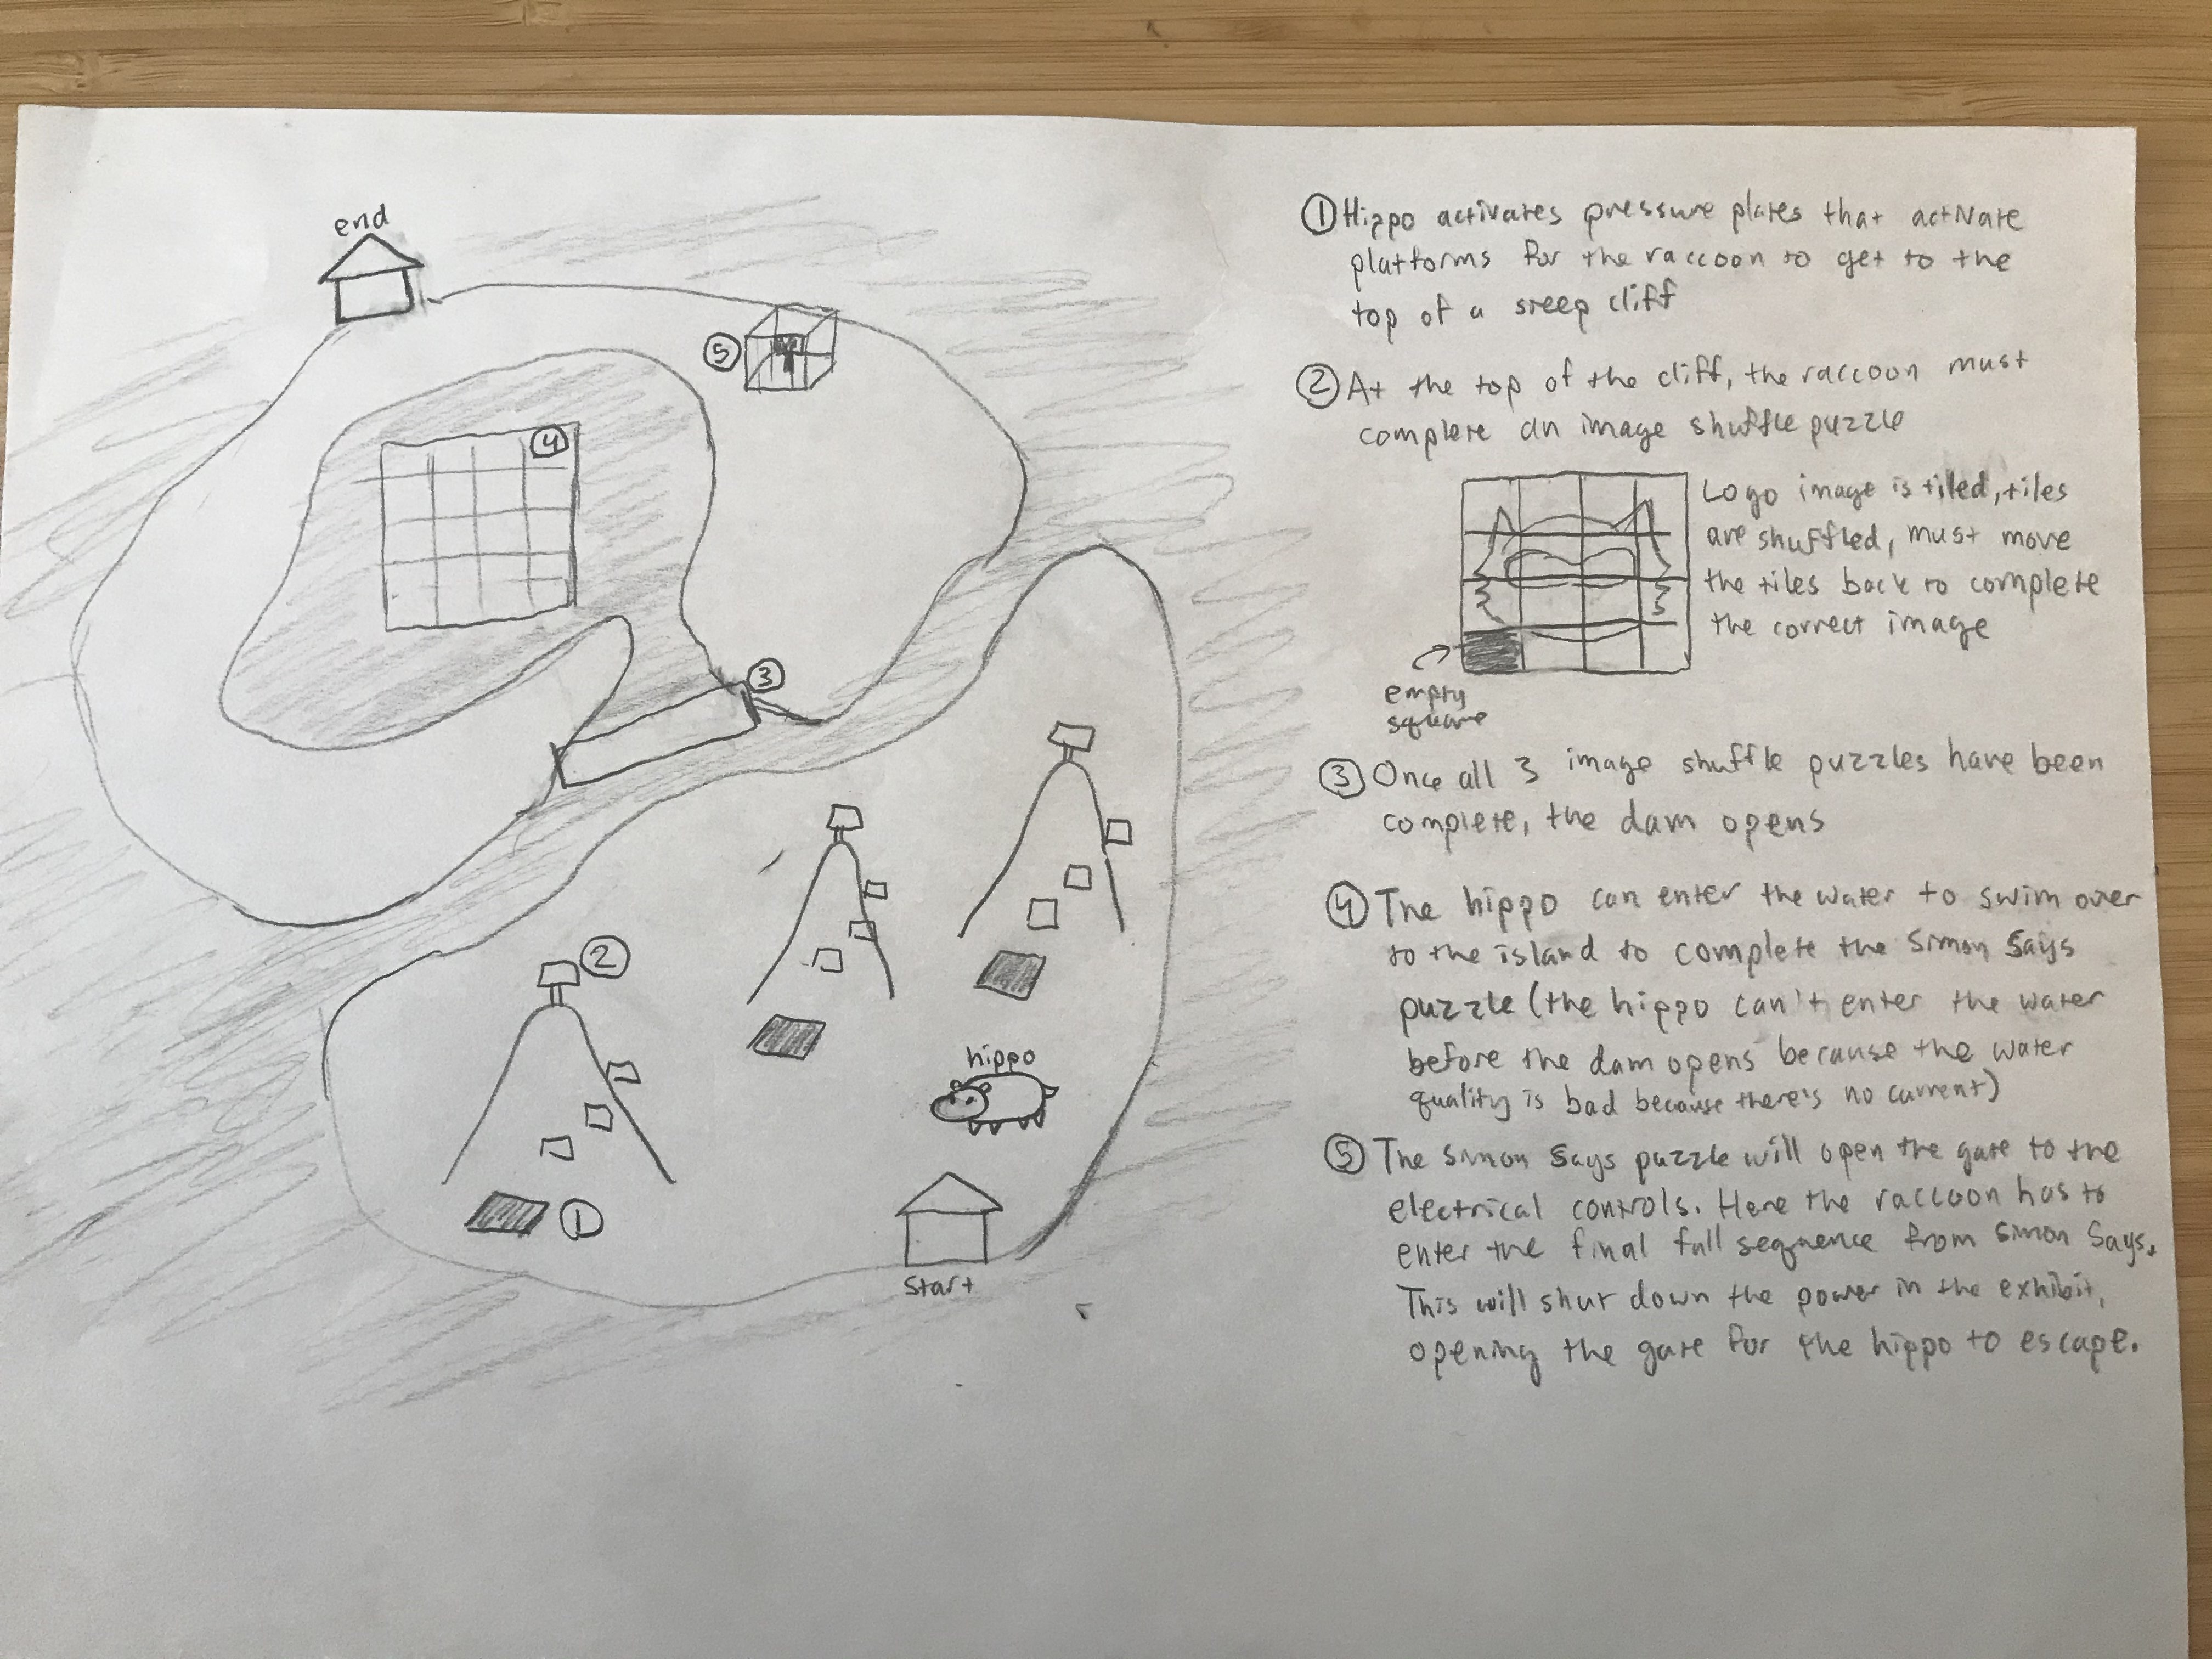 end
⑤
④
③
②
hippo
①
start
① Hippo activates pressure plates that activate
platforms for the raccoon to get to the
top of a steep cliff
② At the top of the cliff, the raccoon must
complete an image shuffle puzzle
Logo image is tiled, tiles
are shuffled, must move
the tiles back to complete
the correct image
empty
square
③ Once all 3 image shuffle puzzles have been
complete, the dam opens
④ The hippo can enter the water to swim over
to the island to complete the Simon Says
puzzle (the hippo can't enter the water
before the dam opens because the water
quality is bad because there's no current)
⑤ The Simon Says puzzle will open the gate to the
electrical controls. Here the raccoon has to
enter the final full sequence from Simon Says.
This will shut down the power in the exhibit,
opening the gate for the hippo to escape.